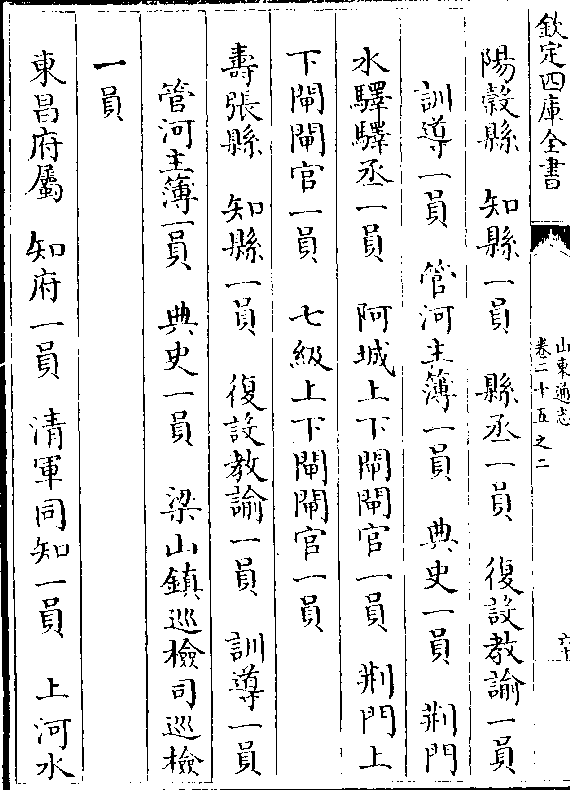 欽定四庫全書
山東通志
卷二十五之二
六十
陽穀縣 知縣一員 縣丞一員 復設教諭一員
訓導一員 管河主簿一員 典史一員 荆門
水驛驛丞一員 阿城上下閘閘官一員 荆門上
下閘閘官一員 七級上下閘閘官一員
壽張縣 知縣一員 復設教諭一員 訓導一員
管河主簿一員 典史一員 梁山鎮巡檢司巡檢
一員
東昌府屬 知府一員 清軍同知一員 上河水